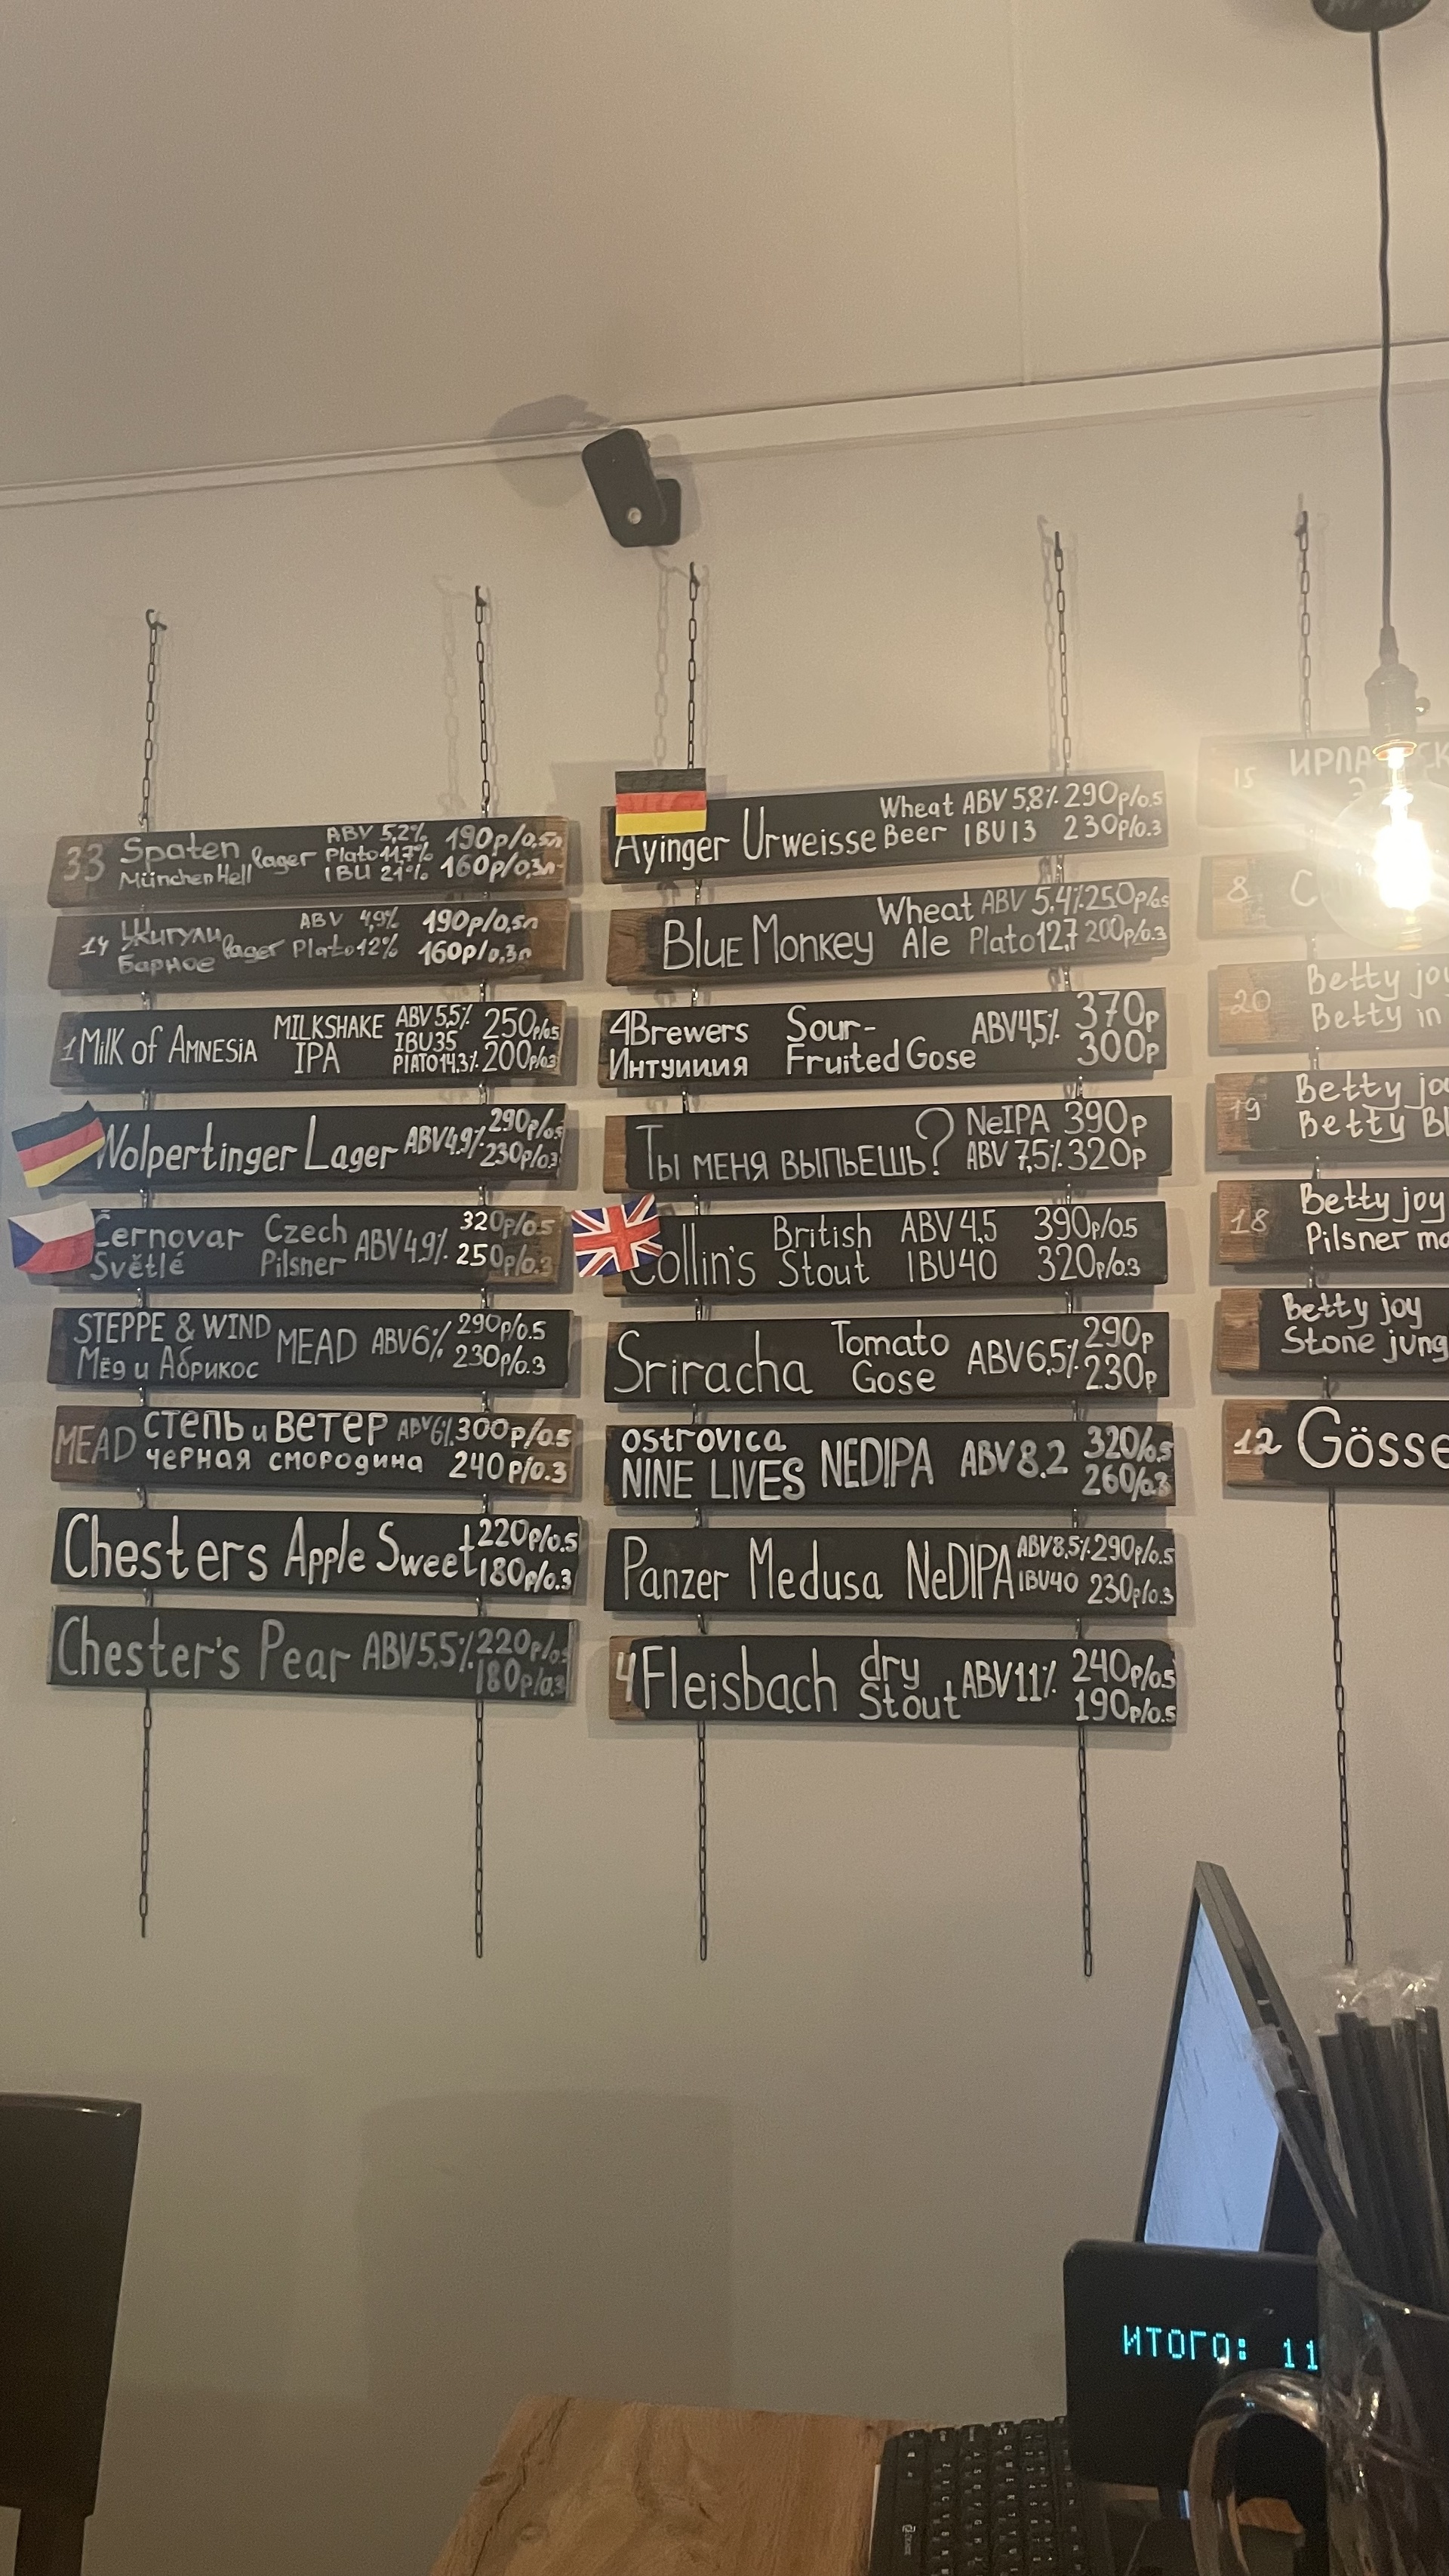 33 Spaten lager ABV 5,2% 190р/0,5л
München Hell Plato 11,7% IBU 21% 160р/0,3л
14 Жигули lager ABV 4,9% 190р/0,5л
Барное Plato 12% 160р/0,3л
1 Milk of Amnesia MILKSHAKE ABV 5,5% 250р/0.5
IPA IBU35 PLATO 14,3% 200р/0.3
Wolpertinger Lager ABV4,9% 290р/0.5
230р/0.3
Černovar Czech ABV4,9% 320р/0.5
Světlé Pilsner 250р/0.3
STEPPE & WIND MEAD ABV6% 290р/0.5
Мёд и Абрикос 230р/0.3
MEAD степь и ветер ABV6% 300р/0.5
черная смородина 240р/0.3
Chesters Apple Sweet 220р/0.5
180р/0.3
Chester's Pear ABV5.5% 220р/0.5
180р/0.3
Ayinger Urweisse Wheat ABV 5,8% 290р/0.5
Beer IBU13 230р/0.3
Blue Monkey Wheat ABV 5,4% 250р/0.5
Ale Plato 12,7 200р/0.3
4Brewers Sour- ABV4,5% 370р
Интуиция Fruited Gose 300р
Ты меня выпьешь? NeIPA 390р
ABV 7,5% 320р
Collin's British ABV 4.5 390р/0.5
Stout IBU40 320р/0.3
Sriracha Tomato ABV6,5% 290р
Gose 230р
ostrovica NEDIPA ABV 8.2 320/0.5
NINE LIVES 260/0.3
Panzer Medusa NeDIPA ABV8,5% 290р/0.5
IBU40 230р/0.3
4 Fleisbach dry ABV11% 240р/0.5
Stout 190р/0.5
15
8 C
20 Betty joy
Betty in
19 Betty
Betty Bl
18 Betty joy
Pilsner
Betty joy
Stone jung
12 Gösse
ИТОГО: 11